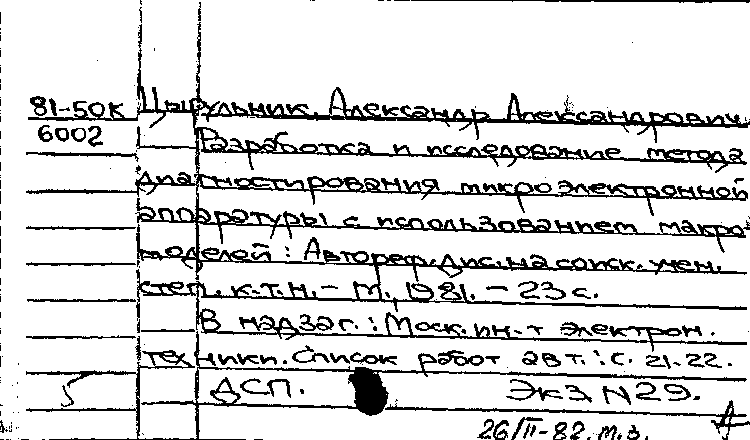 81-50К Цырульник, Александр Александрович.
6002 Разработка и исследование метода
диагностирования микроэлектронной
аппаратуры с использованием макро-
моделей : Автореф. дис. на соиск. учен.
степ. к.т.н. - М., 1981. - 23 с.
В надзаг. : Моск. ин-т электрон.
техники. Список работ авт. : с. 21-22.
ДСП. Экз. N 29.
26/II-82. м.з.